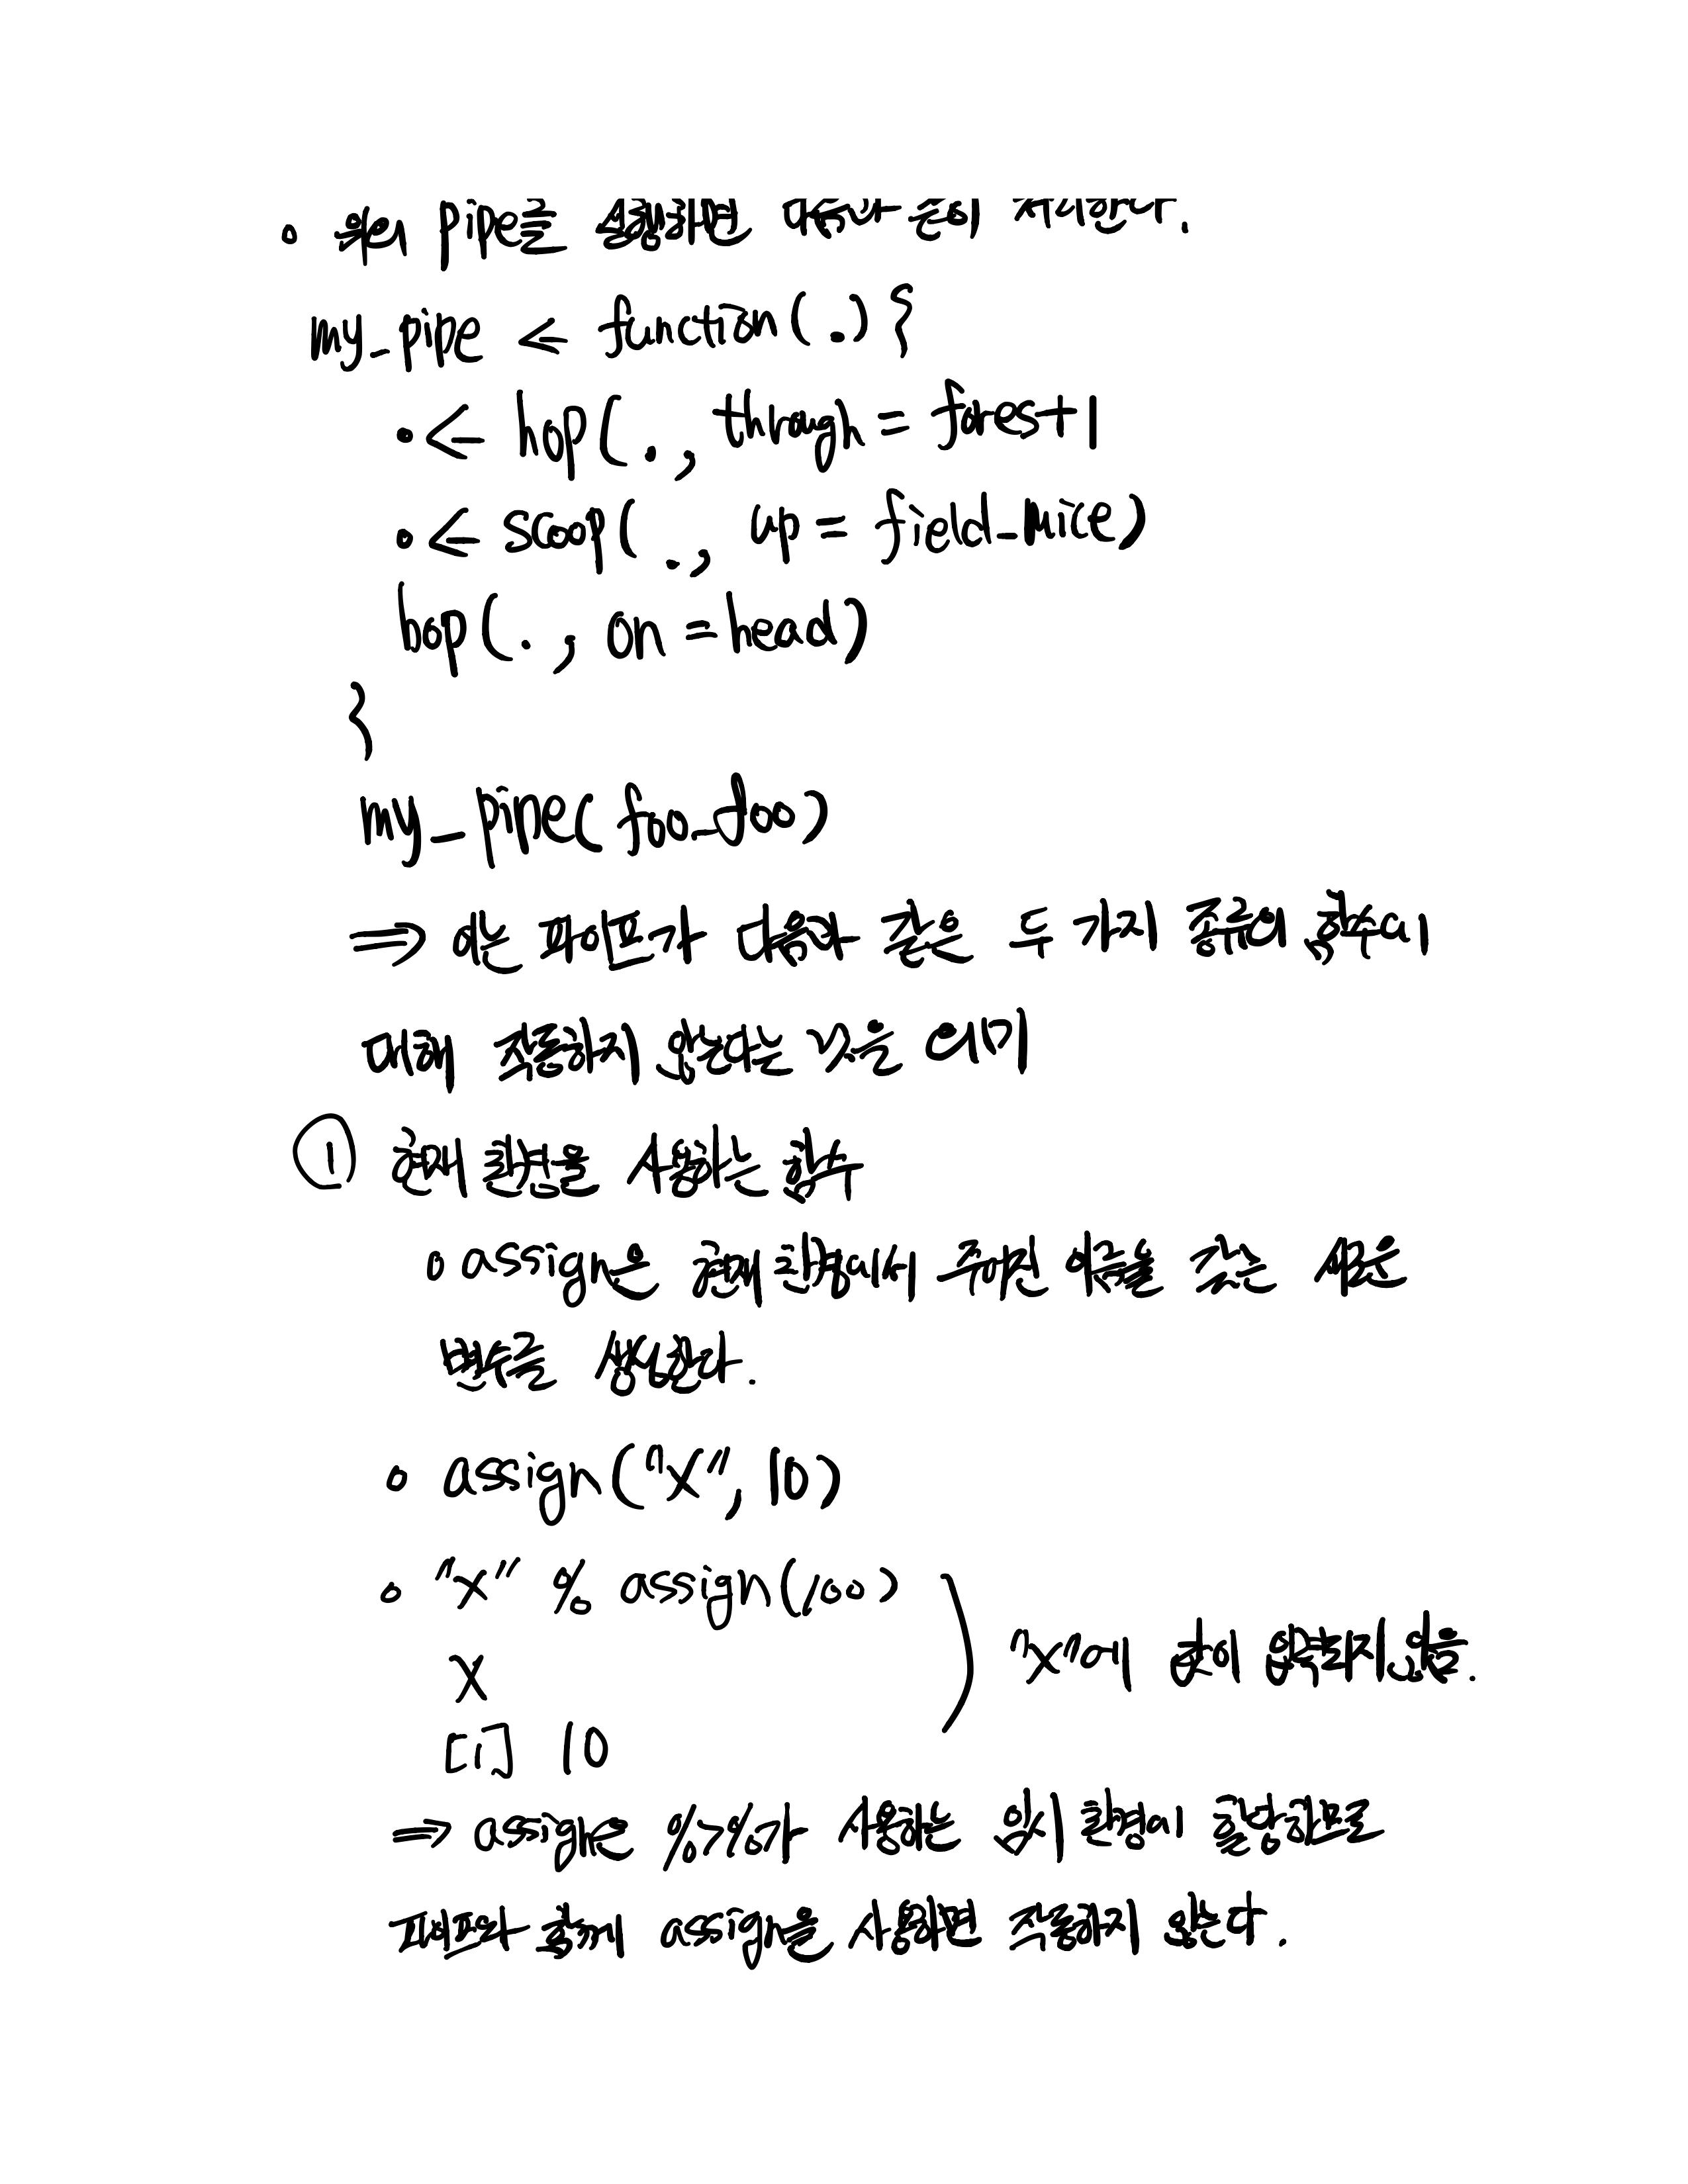 ◦ 위의 pipe를 실행하면 다음과 같이 처리한다.
my_pipe <- function(.){
.<- hop(., through = forest1
.<- scoop(., up = field_mice)
bop(., on = head)
}
my_pipe(foo_foo)
⇒ 이는 파이프가 다음과 같은 두 가지 종류의 함수에
대해 작동하지 않는다는 것을 의미
① 현재 환경을 사용하는 함수
◦ assign은 현재 환경에서 주어진 이름을 갖는 새로운
변수를 생성한다.
◦ assign("x", 10)
◦ "x" % assign(100)
x
[1] 10
) "x"에 값이 입력되지 않음.
⇒ assign은 %>%가 사용하는 임시 환경에 할당하므로
파이프와 함께 assign을 사용하면 작동하지 않는다.